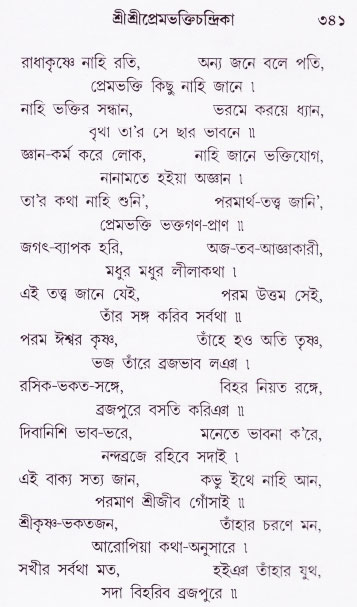 শ্রীশ্রীপ্রেমভক্তিচন্দ্রিকা ৩৪১
রাধাকৃষ্ণে নাহি রতি, অন্য জনে বলে পতি,
প্রেমভক্তি কিছু নাহি জানে ।
নাহি ভক্তির সন্ধান, ভরমে করয়ে ধ্যান,
বৃথা তা'র সে ছার ভাবনে ॥
জ্ঞান-কর্ম করে লোক, নাহি জানে ভক্তিযোগ,
নানামতে হইয়া অজ্ঞান ।
তা'র কথা নাহি শুনি', পরমার্থ-তত্ত্ব জানি',
প্রেমভক্তি ভক্তগণ-প্রাণ ॥
জগৎ-ব্যাপক হরি, অজ-তব-আজ্ঞাকারী,
মধুর মধুর লীলাকথা ।
এই তত্ত্ব জানে যেই, পরম উত্তম সেই,
তাঁর সঙ্গ করিব সর্বথা ॥
পরম ঈশ্বর কৃষ্ণ, তাঁহে হও অতি তৃষ্ণ,
ভজ তাঁরে ব্রজভাব লঞা ।
রসিক-ভকত-সঙ্গে, বিহর নিয়ত রঙ্গে,
ব্রজপুরে বসতি করিঞা ॥
দিবানিশি ভাব-ভরে, মনেতে ভাবনা ক'রে,
নন্দব্রজে রহিবে সদাই ।
এই বাক্য সত্য জান, কভু ইথে নাহি আন,
পরমাণ শ্রীজীব গোঁসাই ॥
শ্রীকৃষ্ণ-ভকতজন, তাঁহার চরণে মন,
আরোপিয়া কথা-অনুসারে ।
সখীর সর্বথা মত, হইঞা তাঁহার যুথ,
সদা বিহরিব ব্রজপুরে ॥